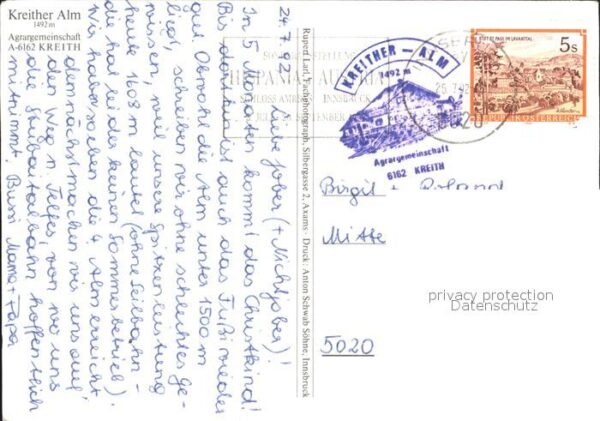 Kreither Alm
1492 m
Agrargemeinschaft
A-6162 KREITH
24.7.92
Liebe Jober (+ Nichtjober)!
In 5 Monaten kommt das Christkind!
Bis dorthin ist auch das Fußi wieder
gut. Obwohl die Alm unter 1500 m
liegt, schreiben wir ohne schlechtes Ge-
wissen, weil unsere Spitzenleistung
heute 1608 m lautet (ohne Seilbahn-
die hat leider keinen Sommerbetrieb).
Wir haben soeben die 4. Alm erreicht
demnächst machen wir uns auf
den Weg n. Telfes, von wo uns
die Stubaitalbahn hoffentlich
mitnimmt. Bussi Mama + Papa
Rupert Larl, Fachphotograph, Silbergasse 2, Axams · Druck: Anton Schwab Söhne, Innsbruck
KREITHER - ALM
1492 m
Agrargemeinschaft
6162 KREITH
SCHLOSS AMBRAS INNSBRUCK
5 s
STIFT ST. PAUL IM LAVANTTAL
REPUBLIK ÖSTERREICH
Birgit + Roland
Mitte
5020
privacy protection
Datenschutz